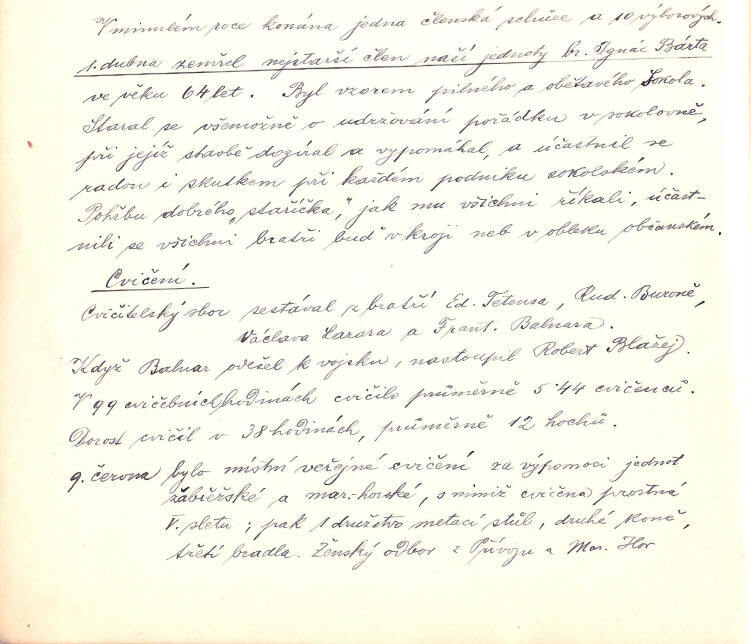 V minulém roce konána jedna členská schůze a 10 výborových.
1. dubna zemřel nejstarší člen naší jednoty br. Ignác Bárta
ve věku 64 let. Byl vzorem pilného a obětavého Sokola.
Staral se všemožně o udržování pořádku v sokolovně,
při jejíž stavbě dozíral a vypomáhal, a účastnil se
radou i skutkem při každém podniku sokolském.
Pohřbu dobrého „stařička“, jak mu všichni říkali, účast-
nili se všichni bratři buď v kroji neb v obleku občanském.
Cvičení.
Cvičitelský sbor sestával z bratří Ed. Tetensa, Rud. Buroně,
Václava Lazara a Frant. Balnara.
Když Balnar odešel k vojsku, nastoupil Robert Blažej.
V 99 cvičebních hodinách cvičilo průměrně 5·44 cvičenců.
Dorost cvičil v 38 hodinách, průměrně 12 hochů.
9. června bylo místní veřejné cvičení za výpomoci jednot
zábřežské a mar.-horské, s nimiž cvičena prostná
V. sletu; pak 1 družstvo metací stůl, druhé koně,
třetí bradla. Ženský odbor z Přívozu a Mar. Hor